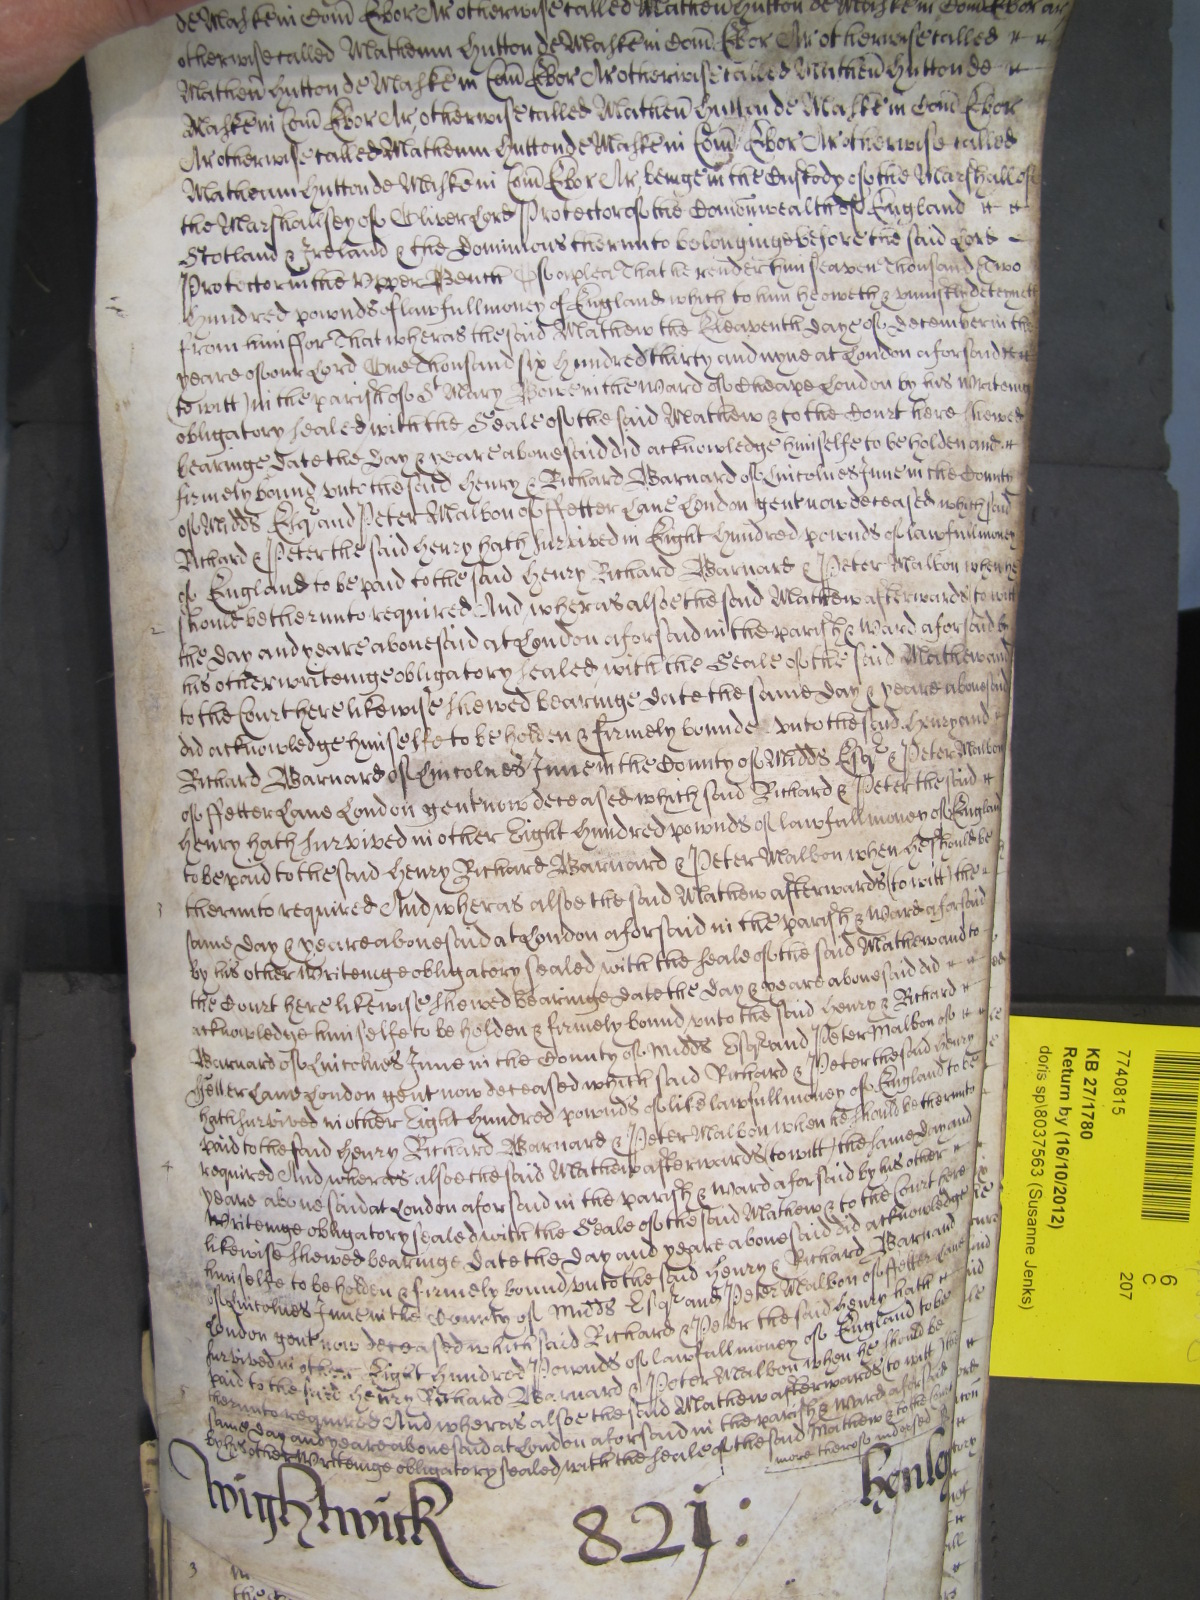 de Maske in Com Ebor Ar otherwise called Mathew Hutton de Maske in Com Ebor Ar
otherwise called Matheum Hutton de Maske in Com Ebor Ar otherwise called
Matheu Hutton de Maske in Com Ebor Ar otherwise called Matheu Hutton de
Maske in Com Ebor Ar, otherwise called Matheu Hutton de Maske in Com Ebor
Ar otherwise called Matheum Hutton de Maske in Com Ebor Ar otherwise called
Matheum Hutton de Maske in Com Ebor Ar, beinge in the Custody of the Marshall of
the Marshallsey of Oliver Lord Protector of the Comonwealth of England
Scotland & Ireland & the Dominions therunto belonginge before the said Lord
Protector in the Upper Bench Of a plea That he render him seaven Thousand & Two
Hundred pownds of lawfull money of England which to him he oweth & uniustly deteineth
from him ffor That wheras the said Mathew the Eleaventh daye of december in the
yeare of our Lord One Thousand six Hundred thirty and nyne at London aforsaid
(to witt) in the parish of St Mary Bowe in the Ward of Cheape London by his Writeing
obligatory sealed with the Seale of the said Mathew & to the Court here shewed
bearinge date the day & yeare abovesaid did acknowledge himselfe to be holden and
firmely bound unto the said Henry & Richard Barnard of Lincolnes Inne in the County
of Midds Esqr and Peter Malbon of ffetter Lane London gent now deceased which said
Richard & Peter the said Henry hath survived in Eight Hundred pownds of lawfull money
of England to be paid to the said Henry Richard Barnard & Peter Malbon when he
should be therunto required And wheras alsoe the said Mathew afterwards to witt
2 the day and yeare abovesaid at London aforsaid in the parish & Ward aforsaid by
his other writeinge obligatory sealed with the Seale of the said Mathew and
to the Court here likewise shewed bearinge date the same day & yeare abovesaid
did acknowledge himselfe to be holden & firmely bounde unto the said Henry and
Richard Barnard of Lincolnes Inne in the County of Midds Esqr & Peter Malbon
of ffetter Lane London gent now deceased which said Richard & Peter the said
Henry hath survived in other Eight Hundred pownds of lawfull money of England
to be paid to the said Henry Richard Barnard & Peter Malbon when he should be
3 therunto required And wheras alsoe the said Mathew afterwards (to witt) the
same day & yeare abovesaid at London aforsaid in the parish & Ward aforsaid
by his other Writeinge obligatory sealed with the seale of the said Mathew and to
the Court here likewise shewed bearinge date the day & yeare abovesaid did
acknowledge himselfe to be holden & firmely bound unto the said Henry & Richard
Barnard of Lincolnes Inne in the County of Midds Esqr and Peter Malbon of
ffetter Lane London gent now deceased which said Richard & Peter the said Henry
hath survived in other Eight Hundred pownds of like lawfull money of England to be
paid to the said Henry Richard Barnard & Peter Malbon when he should be therunto
4 required And wheras alsoe the said Mathew afterwards (to witt) the same day and
yeare abovesaid at London aforsaid in the parish & Ward aforsaid by his other
Writeinge obligatory sealed with the Seale of the said Mathew & to the Court here
likewise shewed bearinge date the day and yeare abovesaid did acknowledge
himselfe to be holden & firmely bound unto the said Henry & Richard Barnard
of Lincolnes Inne in the County of Midds Esqr and Peter Malbon of ffetter Lane
London gent now deceased which said Richard & Peter the said Henry hath
survived in other Eight Hundred Pownds of lawfull money of England to be
paid to the said Henry Richard Barnard & Peter Malbon when he should be
5 therunto required And wheras alsoe the said Mathew afterwards (to witt) the
same day and yeare abovesaid at London aforsaid in the parish & Ward aforsaid
by his other Writeinge obligatory sealed with the seale of the said Mathew & to the
more therof indorsed
Wightwick 821: Henly
3
7740815
KB 27/1780
Return by (16/10/2012)
doris sp\8037563 (Susanne Jenks)
6
C
207